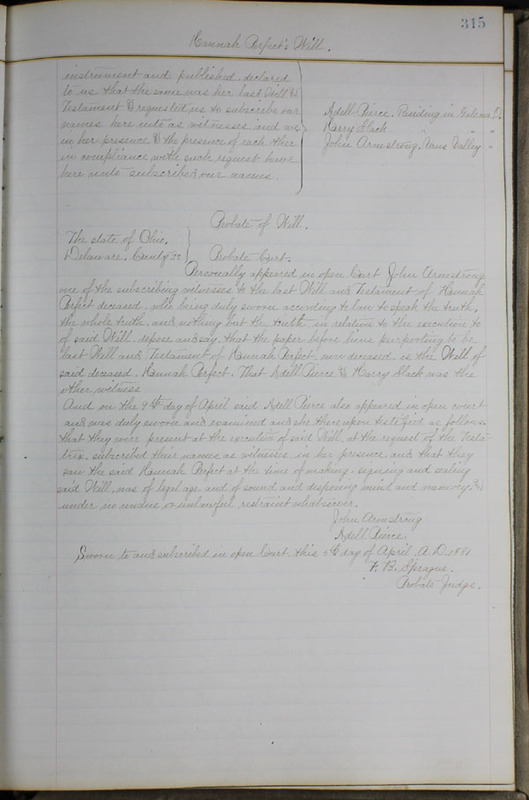 315
Hannah Perfect's Will.
instrument and published, declared
to us that the same was her last Will &
Testament & requested us to subscribe our
names here unto as witnesses and we
in her presence & the presence of each other
in compliance with such request have
here unto subscribed our names.
Adell Pierce, Residing in Galena O.
Harry Slack " " "
John Armstrong, Valley "
Probate of Will.
The state of Ohio,
Delaware, County ss
Probate Court.
Personally appeared in open Court John Armstrong
one of the subscribing witnesses to the last Will and Testament of Hannah
Perfect deceased, who being duly sworn according to law to speak the truth,
the whole truth, and nothing but the truth in relation to the execution to
of said Will, depose and say, that the paper before him purporting to be
last Will and Testament of Hannah Perfect now deceased, is the Will of
said deceased, Hannah Perfect. That Adell Pierce & Harry Slack was the
other witness
And on the 9th day of April said Adell Pierce also appeared in open court
and was duly sworn and examined and she thereupon testified as follows.
that they were present at the execution of said Will, at the request of the Testa-
trix, subscribed their names as witnesses in her presence and that they
saw the said Hannah Perfect at the time of making, signing and sealing
said Will, was of legal age and of sound and disposing mind and memory, &
under no undue or unlawful restraint whatsoever.
John Armstrong
Adell Pierce.
Sworn to and subscribed in open Court this day of April A.D. 1881
F. B. Sprague.
Probate Judge.